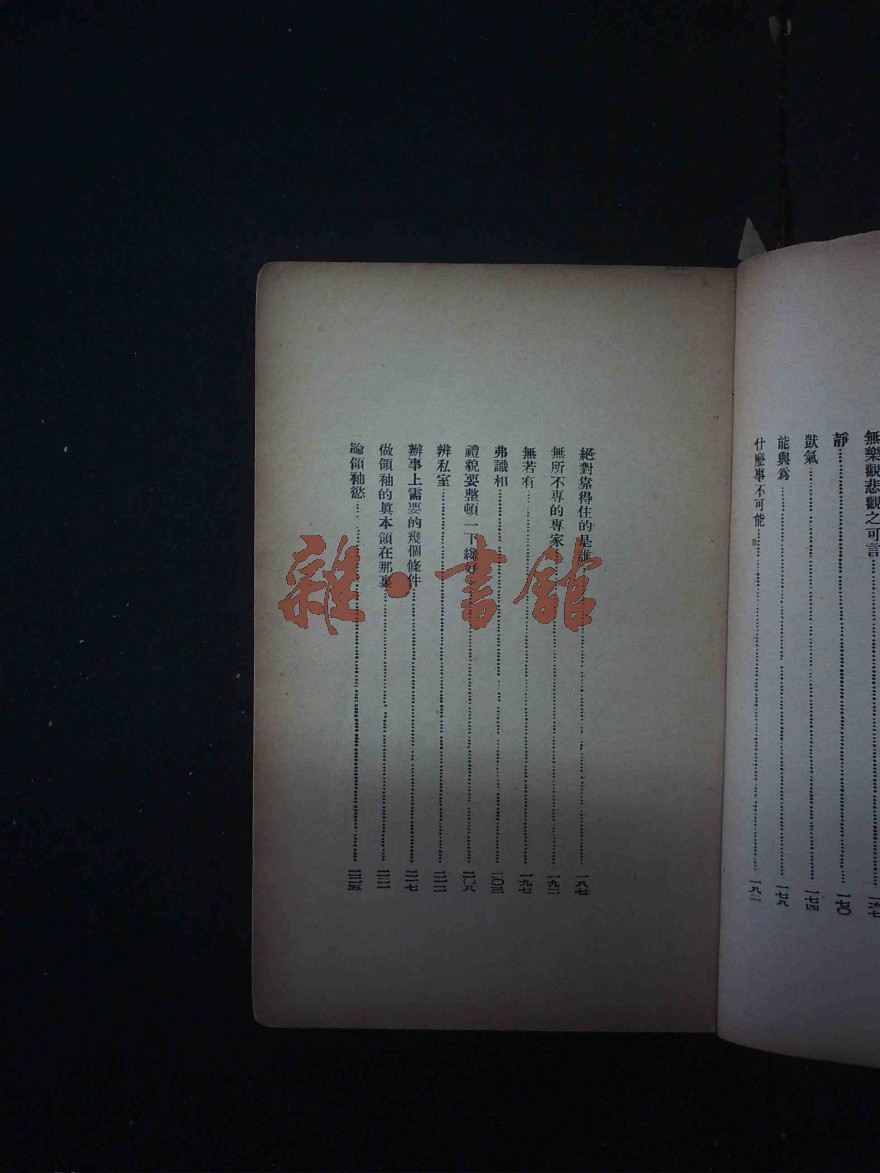 無樂觀悲觀之可言
靜……一七〇
獃氣……一七四
能與爲……一七八
什麼事不可能……一八二
絕對靠得住的是誰……一八七
無所不專的專家……一九二
無若有……一九七
弗識相……二〇三
禮貌要整頓一下纔好……二〇八
辨私室……二一二
辦事上需要的幾個條件……二一七
做領袖的眞本領在那裏……二二二
論領袖慾……二二五
雜·書館